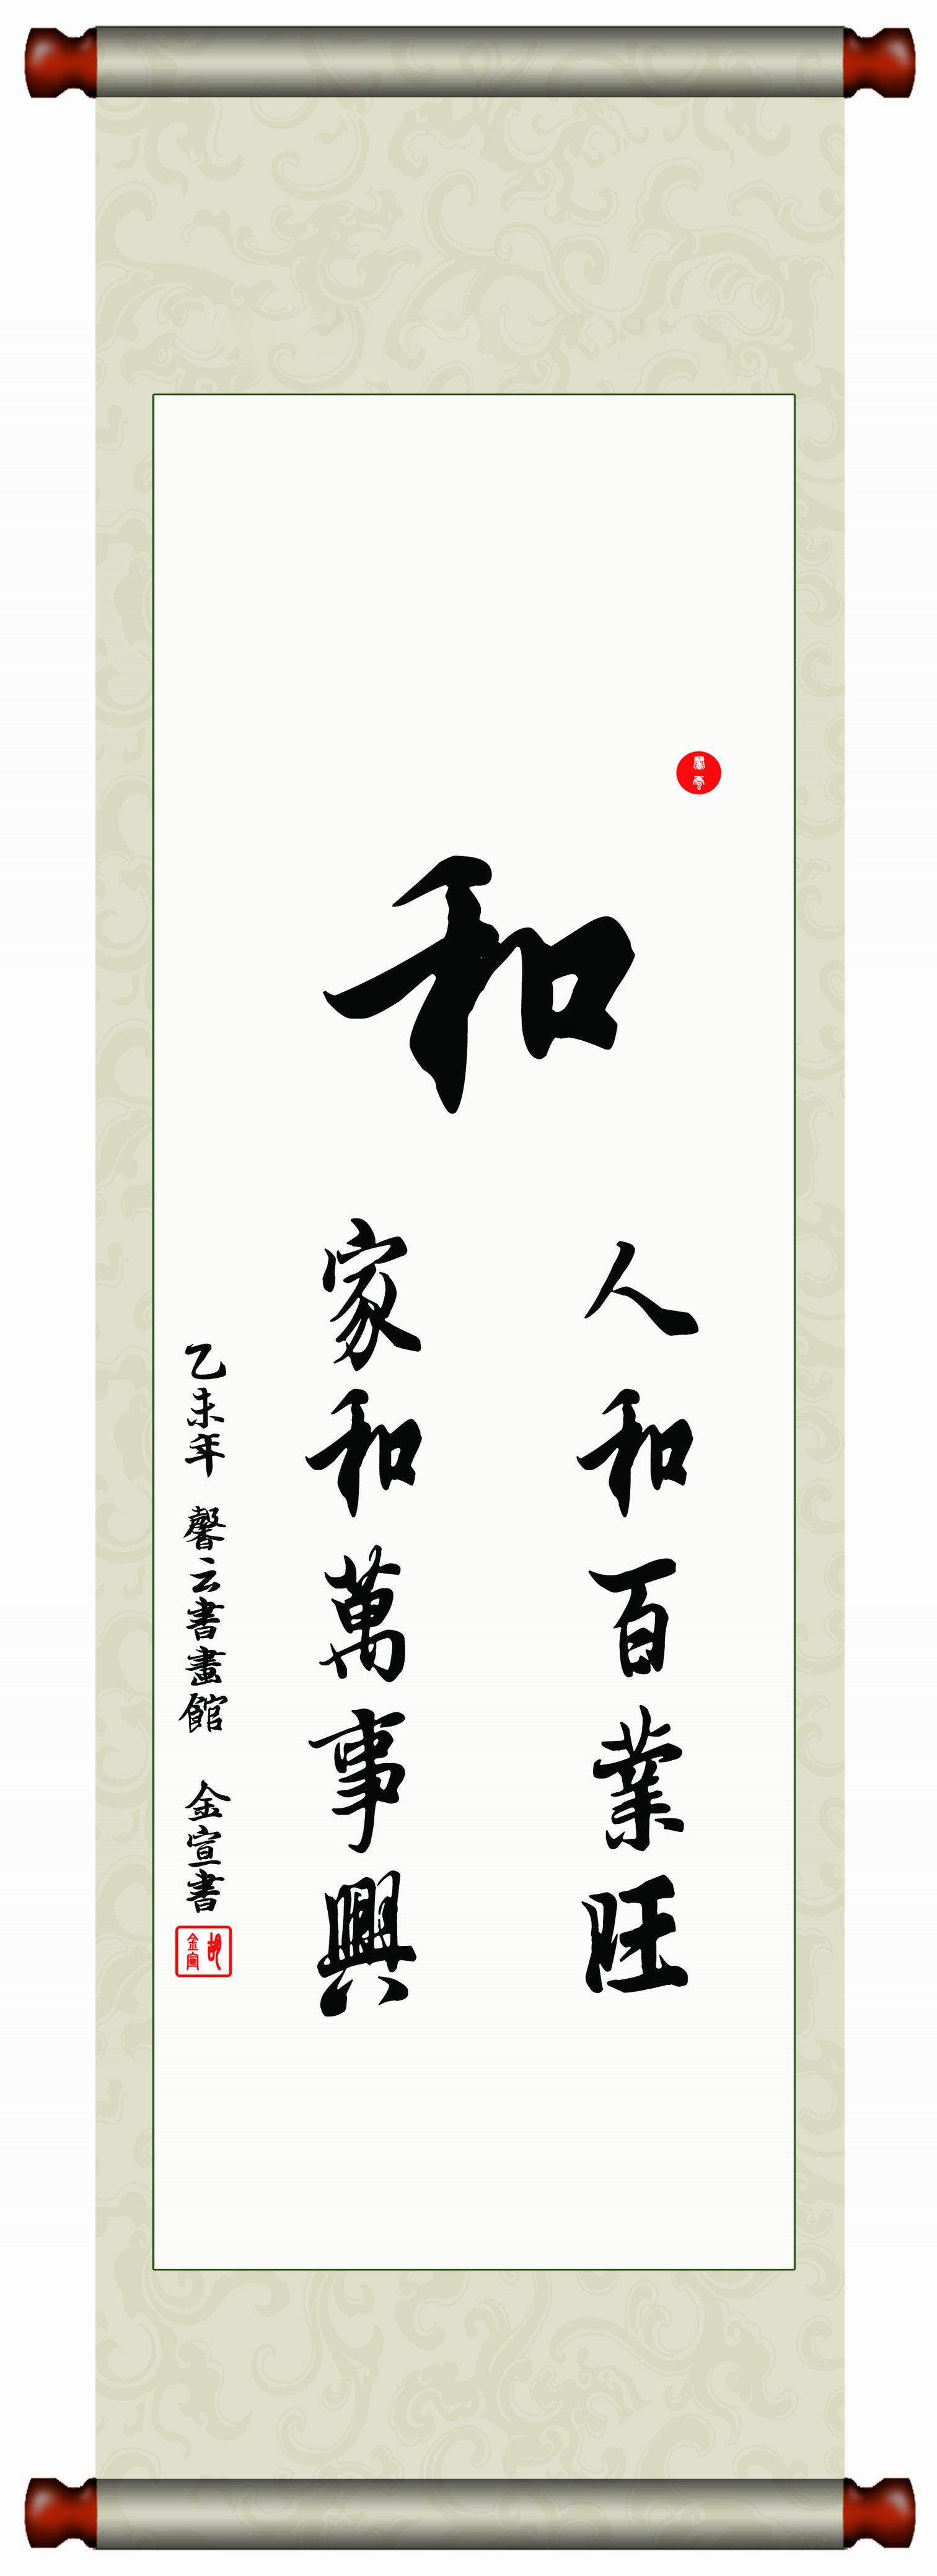 和
人和百業旺
家和萬事興
乙未年 馨云書畫館 金宣書
胡金宣